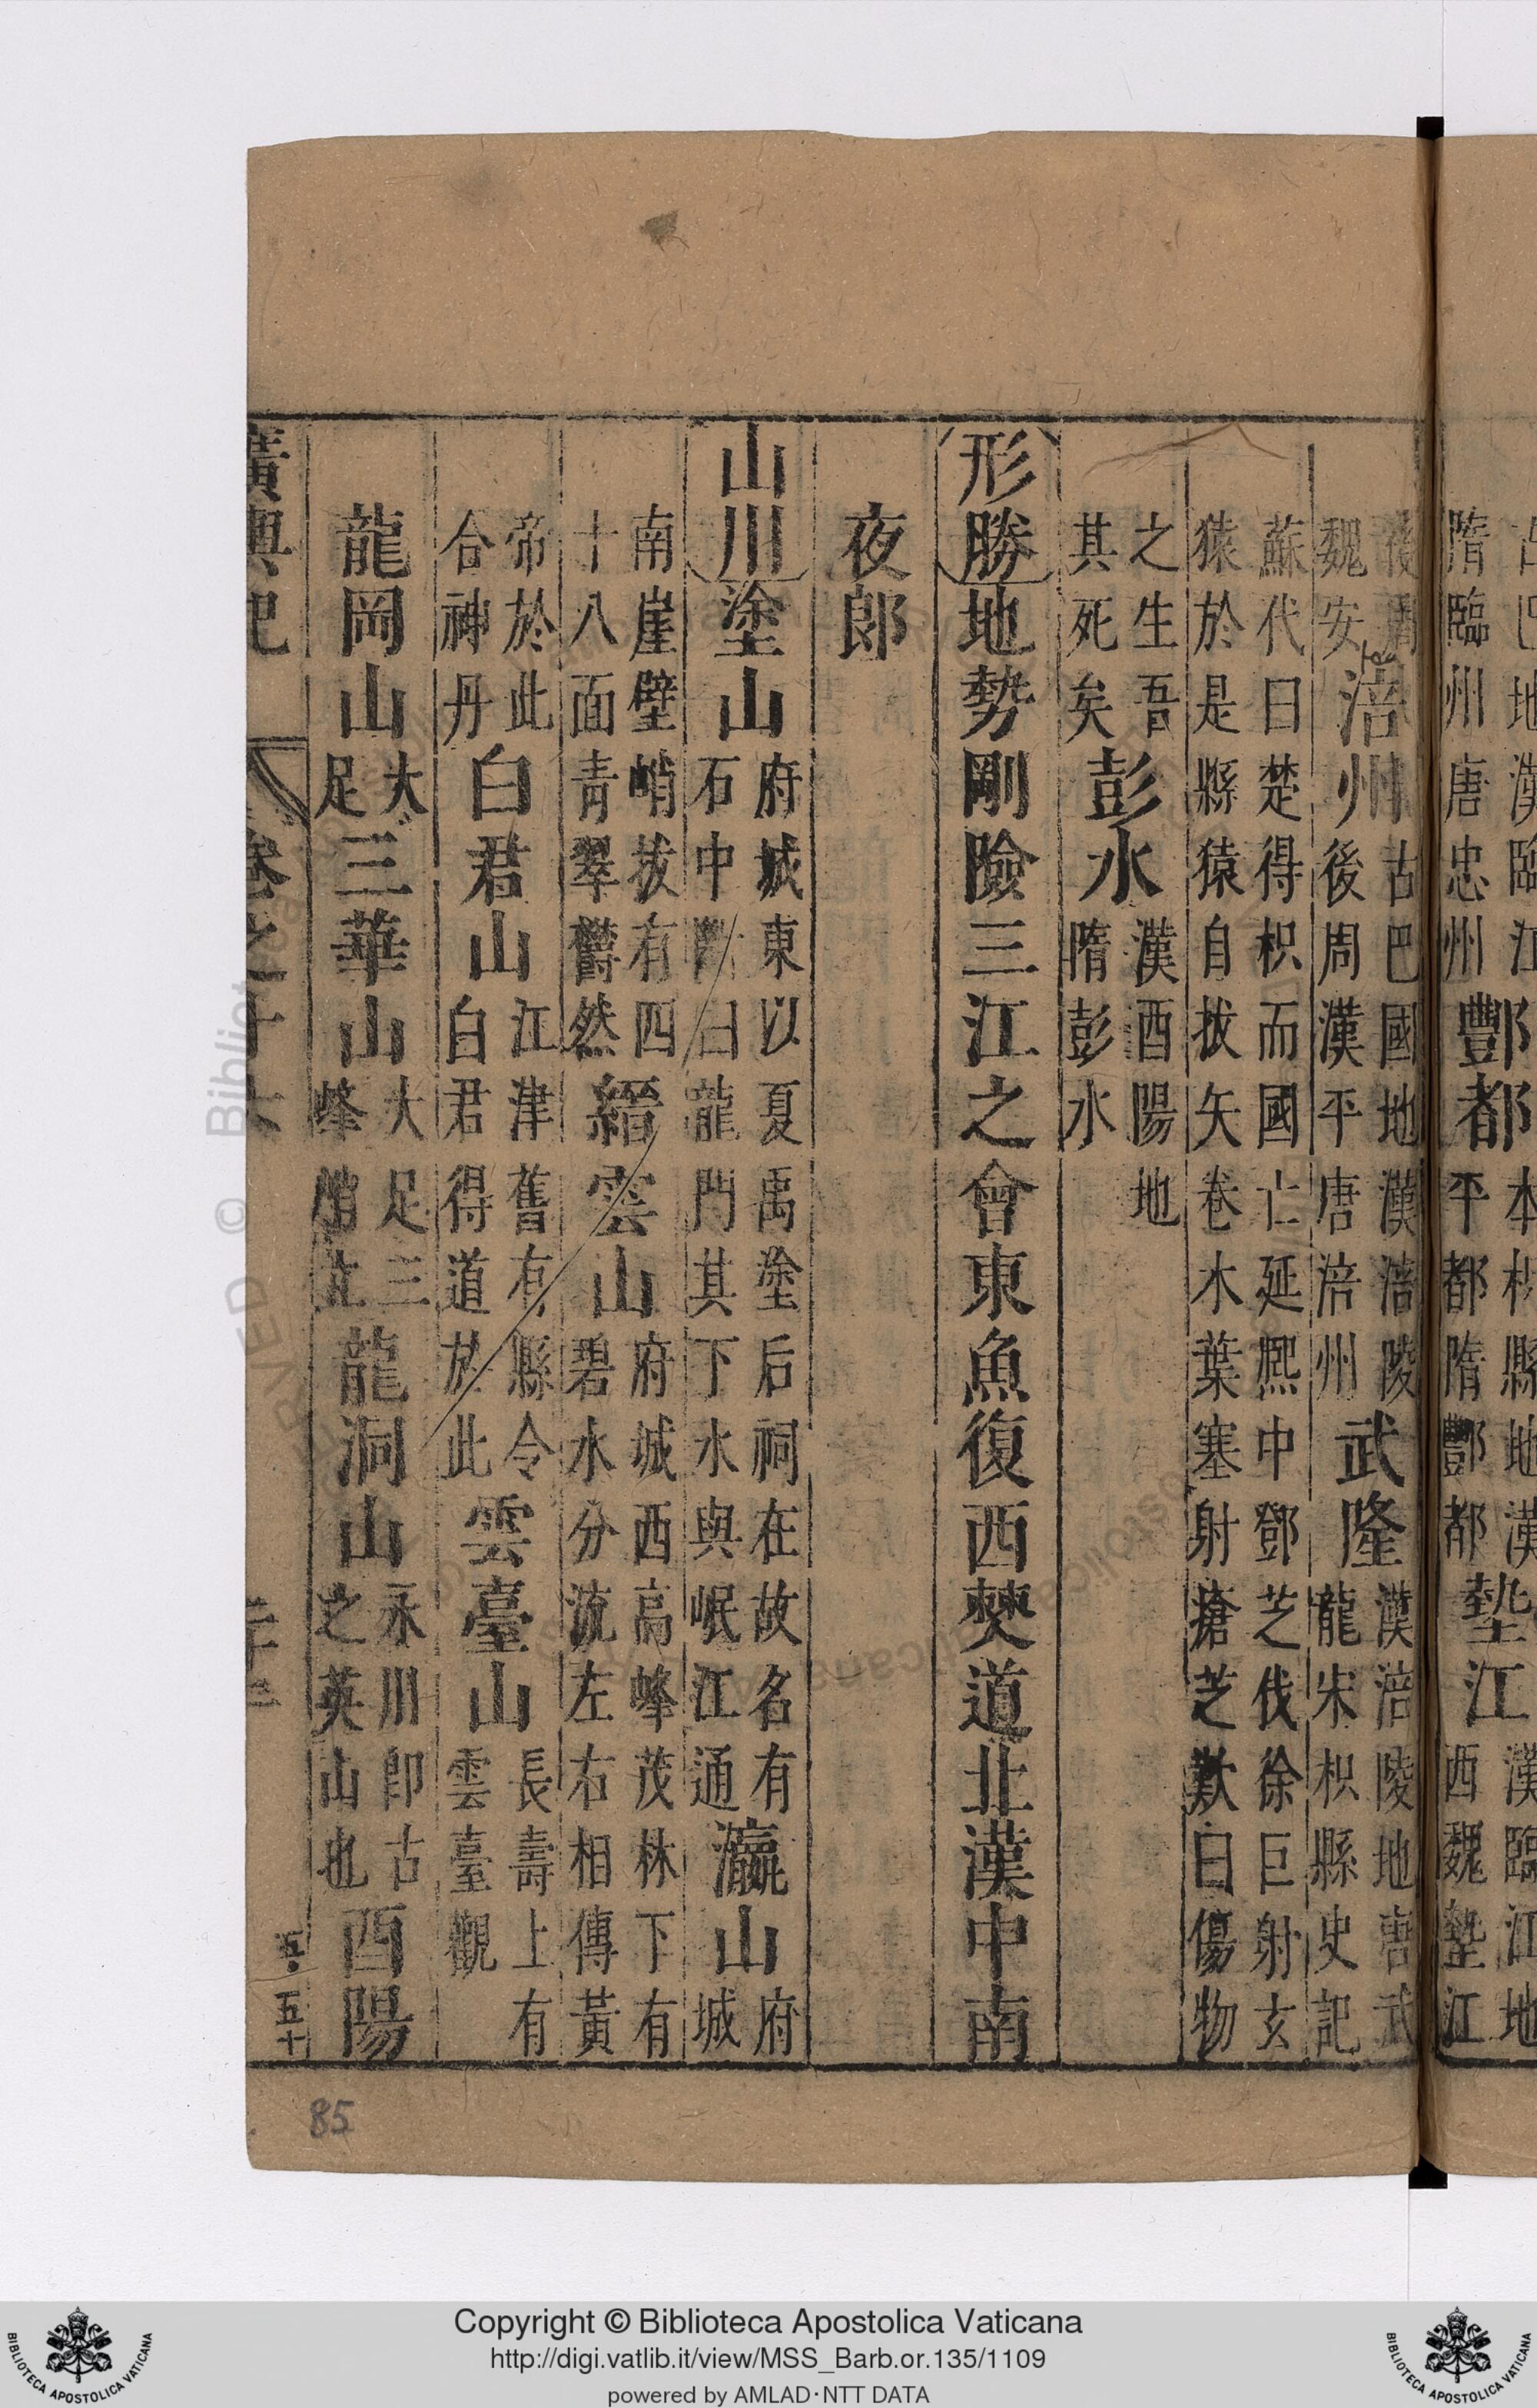 隋臨州唐忠州酆都平都隋酆都墊江西魏墊江
涪州古巴國地漢涪陵後周漢平唐涪州武隆漢涪陵地唐武龍宋枳縣史記
蘇代曰楚得枳而國亡延熙中鄧芝伐徐巨射玄
猿於是縣猿自拔矢卷木葉塞射瘡芝歎曰傷物
之生吾其死矣彭水漢酉陽地隋彭水
形勝地勢剛險三江之會東魚復西僰道北漢中南
夜郎
山川塗山府城東以夏禹塗后祠在故名有石中斷曰龍門其下水與岷江通瀛山府城
南崖壁峭拔有四十八面青翠欝然縉雲山府城西高峰茂林下有碧水分流左右相傳黃
帝於此合神丹白君山江津舊有縣令白君得道於此雲臺山長壽上有雲臺觀
龍岡山大足三華山大足三峰峭立龍洞山永川卽古之英山也酉陽
廣輿記 卷之十六
五十
85
Copyright © Biblioteca Apostolica Vaticana
http://digi.vatlib.it/view/MSS_Barb.or.135/1109
powered by AMLAD·NTT DATA
BIBLIOTECA APOSTOLICA VATICANA
BIBLIOTECA APOSTOLICA VATICANA